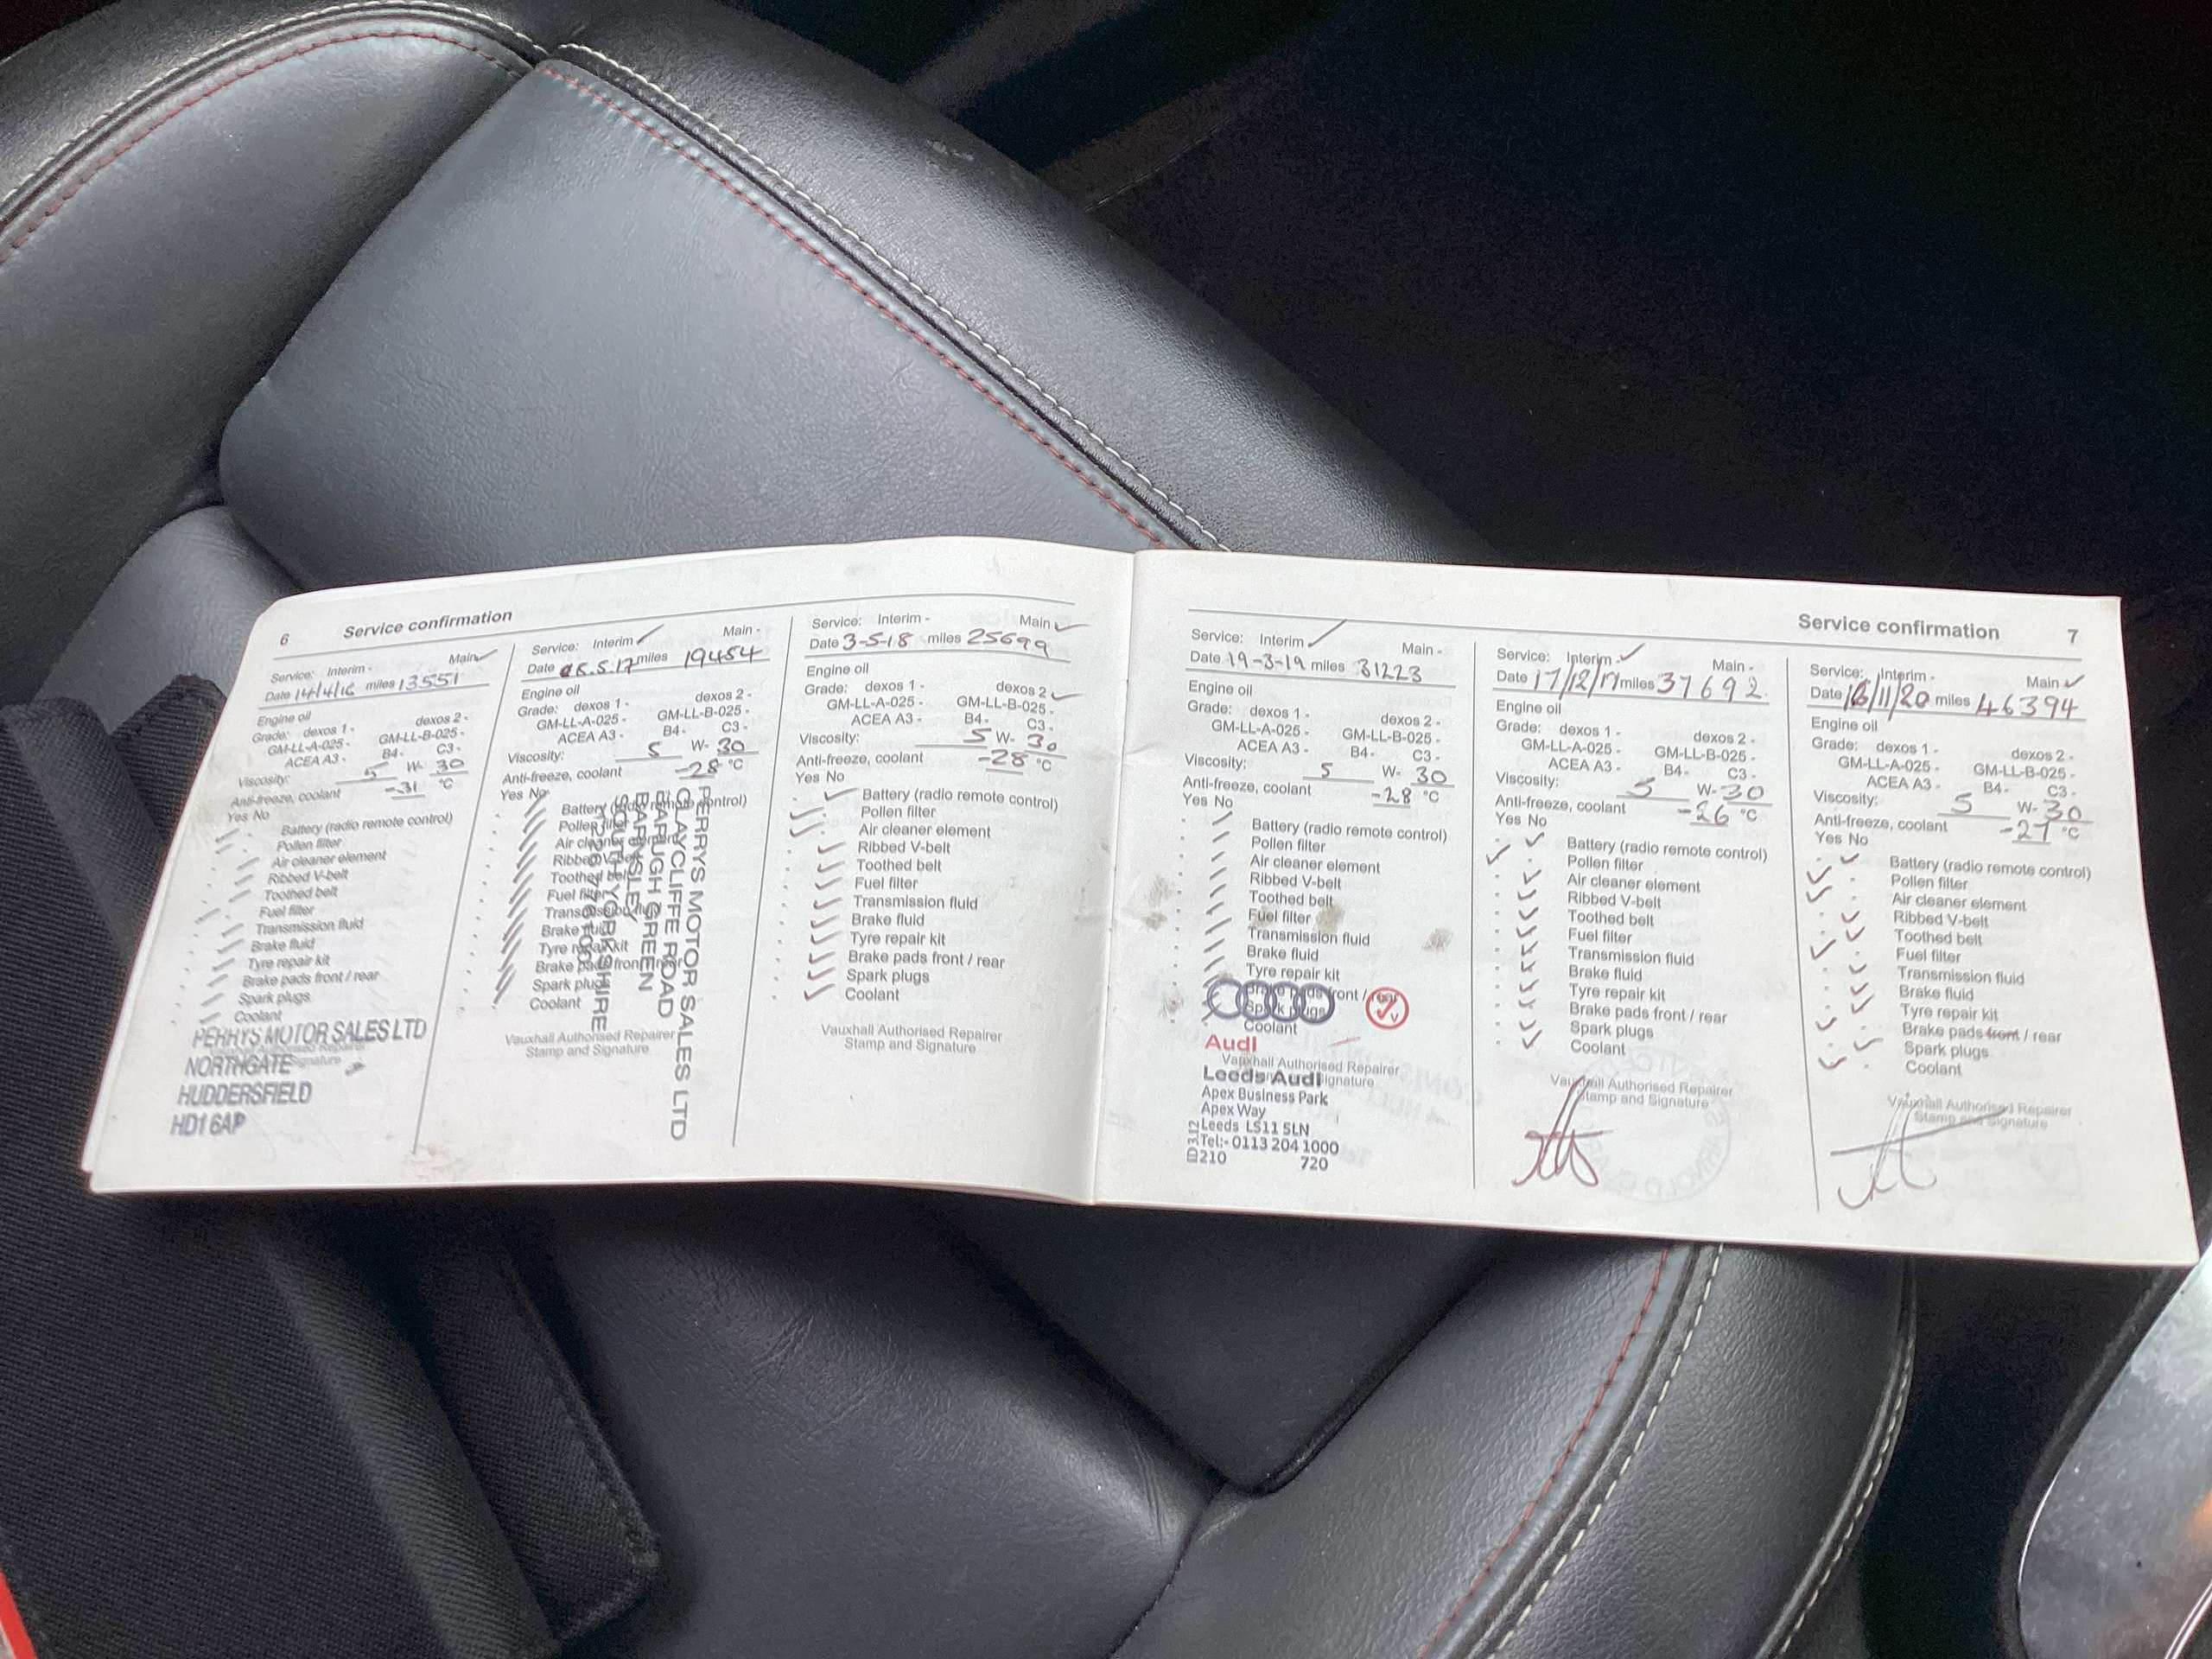 6 Service confirmation
Service: Interim - Main ✓
Date 14/4/16 miles 13551
Engine oil
Grade: dexos 1 - dexos 2 -
GM-LL-A-025 - GM-LL-B-025 -
ACEA A3 - B4 - C3 -
Viscosity: 5 W- 30
Anti-freeze, coolant -31 °C
Yes No
Battery (radio remote control)
Pollen filter
Air cleaner element
Ribbed V-belt
Toothed belt
Fuel filter
Transmission fluid
Brake fluid
Tyre repair kit
Brake pads front / rear
Spark plugs
Coolant
PERRYS MOTOR SALES LTD
NORTHGATE
HUDDERSFIELD
HD1 6AP
Service: Interim ✓ Main -
Date 5.17 miles 19454
Engine oil
Grade: dexos 1 - dexos 2 -
GM-LL-A-025 - GM-LL-B-025 -
ACEA A3 - B4 - C3 -
Viscosity: 5 W- 30
Anti-freeze, coolant -28 °C
Yes No
Battery (radio remote control)
Pollen filter
Air cleaner element
Ribbed V-belt
Toothed belt
Fuel filter
Transmission fluid
Brake fluid
Tyre repair kit
Brake pads front / rear
Spark plugs
Coolant
Vauxhall Authorised Repairer
Stamp and Signature
PERRYS MOTOR SALES LTD
CLAYCLIFFE ROAD
BARUGH GREEN
BARNSLEY
SOUTH YORKSHIRE
Service: Interim - Main ✓
Date 3-5-18 miles 25699
Engine oil
Grade: dexos 1 - dexos 2 ✓
GM-LL-A-025 - GM-LL-B-025 -
ACEA A3 - B4 - C3 -
Viscosity: 5 W- 30
Anti-freeze, coolant -28 °C
Yes No
Battery (radio remote control)
Pollen filter
Air cleaner element
Ribbed V-belt
Toothed belt
Fuel filter
Transmission fluid
Brake fluid
Tyre repair kit
Brake pads front / rear
Spark plugs
Coolant
Vauxhall Authorised Repairer
Stamp and Signature
Service confirmation 7
Service: Interim ✓ Main -
Date 19-3-19 miles 31223
Engine oil
Grade: dexos 1 - dexos 2 -
GM-LL-A-025 - GM-LL-B-025 -
ACEA A3 - B4 - C3 -
Viscosity: 5 W- 30
Anti-freeze, coolant -28 °C
Yes No
Battery (radio remote control)
Pollen filter
Air cleaner element
Ribbed V-belt
Toothed belt
Fuel filter
Transmission fluid
Brake fluid
Tyre repair kit
Brake pads front / rear
Spark plugs
Coolant
Audi
Vauxhall Authorised Repairer
Leeds Audi Signature
Apex Business Park
Apex Way
Leeds LS11 5LN
Tel:- 0113 204 1000
210 720
Service: Interim - ✓ Main -
Date 17/12/19 miles 37692
Engine oil
Grade: dexos 1 - dexos 2 -
GM-LL-A-025 - GM-LL-B-025 -
ACEA A3 - B4 - C3 -
Viscosity: 5 W- 30
Anti-freeze, coolant -26 °C
Yes No
Battery (radio remote control)
Pollen filter
Air cleaner element
Ribbed V-belt
Toothed belt
Fuel filter
Transmission fluid
Brake fluid
Tyre repair kit
Brake pads front / rear
Spark plugs
Coolant
Vauxhall Authorised Repairer
Stamp and Signature
Service: Interim - Main ✓
Date 16/11/20 miles 46394
Engine oil
Grade: dexos 1 - dexos 2 -
GM-LL-A-025 - GM-LL-B-025 -
ACEA A3 - B4 - C3 -
Viscosity: 5 W- 30
Anti-freeze, coolant -27 °C
Yes No
Battery (radio remote control)
Pollen filter
Air cleaner element
Ribbed V-belt
Toothed belt
Fuel filter
Transmission fluid
Brake fluid
Tyre repair kit
Brake pads front / rear
Spark plugs
Coolant
Vauxhall Authorised Repairer
Stamp and Signature